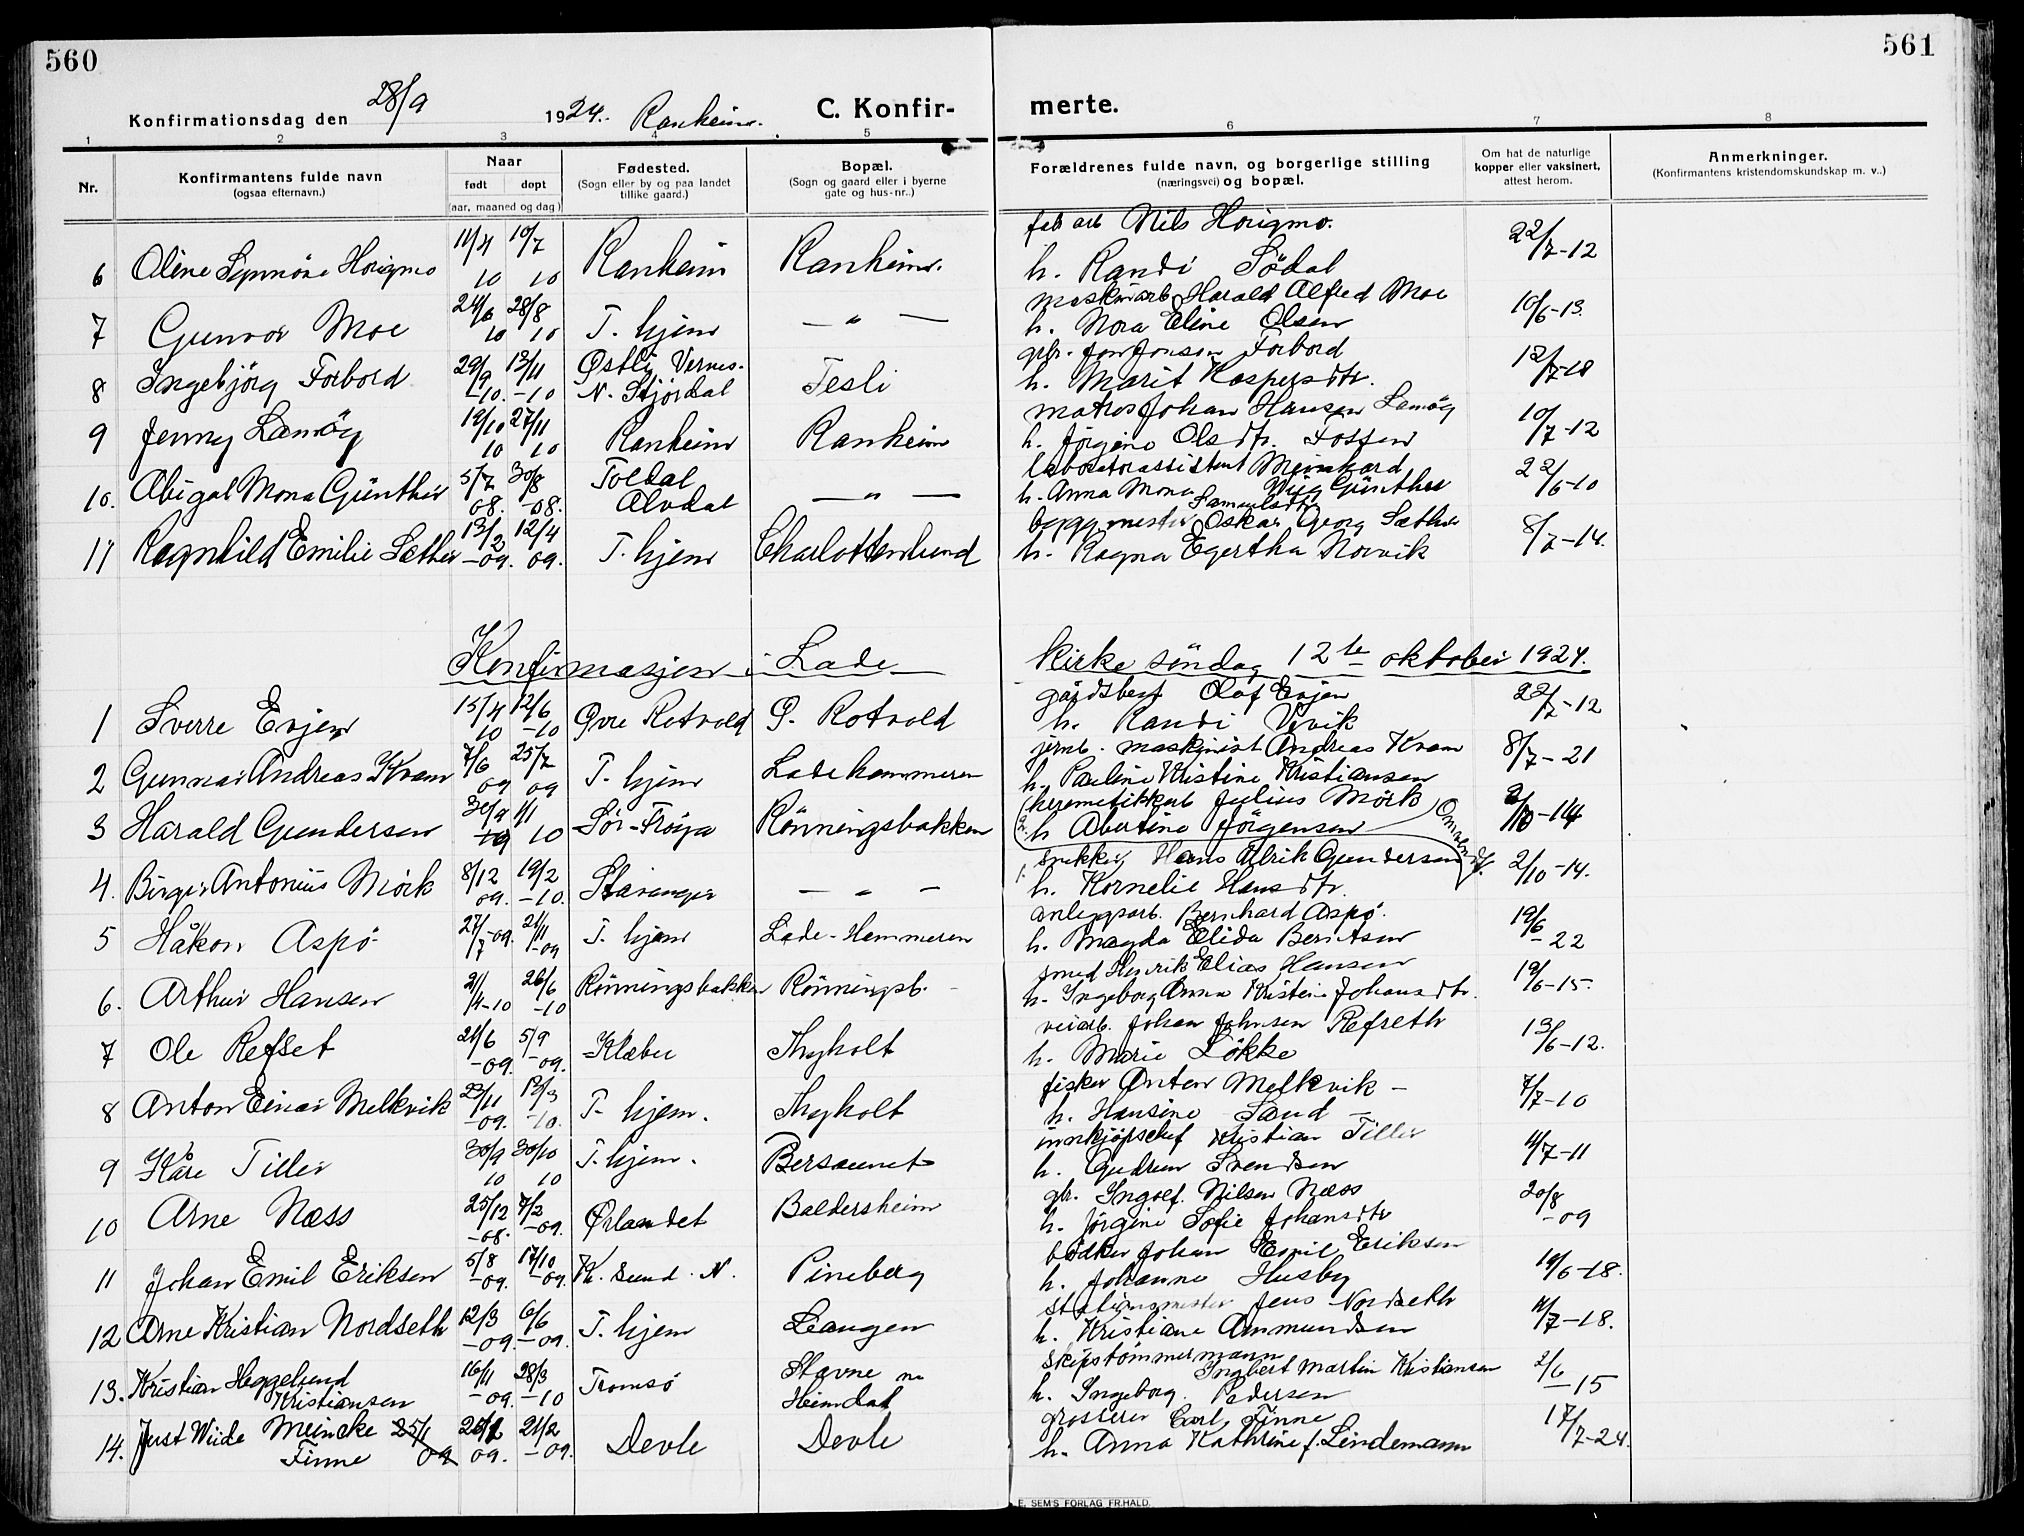 560
561
Konfirmationsdag den 28/9 1924. Ranheim.
C. Konfir-
merte.
1 2 3 4 5 6 7 8
Nr.
Konfirmantens fulde navn
(ogsaa efternavn.)
Naar
født dopt
(aar, maaned og dag)
Fødested.
(Sogn eller by og paa landet
tillike gaard.)
Bopæl.
(Sogn og gaard eller i byerne
gate og hus-nr.)
Forældrenes fulde navn, og borgerlige stilling
(næringsvei) og bopæl.
Om hat de naturlige
kopper eller vaksinert,
attest herom.
Anmerkninger.
(Konfirmantens kristendomskundskap m. v..)
fab arb Nils Horigmo.
6 Oline Synnöve Horigmo 11/4 10 10/7 10 Ranheim Ranheim. h. Randi Södal 22/7-12
maskinarb Harald Alfred Moe
7 Gunvor Moe 24/6 10 28/8 10 T. hjem — " — h. Nora Eline Olsen 10/6-13.
gbr. Jon Jonsen Forbord
8 Ingebjörg Forbord 29/9 -10. 13/11 -10 Østli Vernes. N. Stjördal Tesli h. Marit Kaspersdtr. 12/7-18
matros Johan Hansen Lamöy
9 Jenny Lamöy 19/10 10 27/11 10 Ranheim Ranheim h. Jörgine Olsdtr. Fossen 10/7-12
laboratorassistent Meinhard
10. Abigal Mona Günther 5/7 08. 30/8 -08. Foldal Alvdal — " — h. Anna Mona Wiig Günther Samuelsdtr 22/6-10
byggmester Oskar Georg Sæther
11 Ragnhild Emilie Sæther 13/2 -09. 12/4 09. T. hjem Charlottenlund h. Ragna Egertha Norvik 8/7-14.
Konfirmasjon i Lade kirke söndag 12te oktober 1924.
gårdsbest Olaf Evjen
1 Sverre Evjen 15/4 10 12/6 -10 Øvre Rotvold Ø. Rotvold h. Randi Vivik 22/7-12
jernb. maskinist Andreas Kvam
2 Gunnar Andreas Kvam 7/6 09 25/7 09 T. hjem Ladehammeren h. Pauline Kristine Kristiansen 8/7-21
hermetikkarb Julius Mörk
3 Harald Gundersen 30/9 09 1/1 10 Sör-Fröya Rönningsbakken h Abertine Jörgensen 2/10-14
snekker Hans Ulrik Gundersen
4. Birger Antonius Mörk 8/12 09. 19/2 -10. Stavanger — " — h. Kornelie Hansdtr. 2/10-14.
anleggsarb. Bernhard Aspö.
5 Håkon Aspö 27/7 -09. 21/11 -09 T. hjem Lade-Hammeren h. Magda Elida Berntsen 19/6-22
smed Henrik Elias Hansen
6. Arthur Hansen 21/4-10 26/6 -10 Rönningsbakken Rönningsb. h. Ingeborg Anna Kristine Johansdtr. 19/6-15.
veiarb. Johan Johnsen Refseth
7 Ole Refset 21/6 -09. 5/9 -09. Klæbu Thyholt h. Marie Lökke 13/6-12.
fisker Anton Melkvik —
8 Anton Einar Melkvik 23/11 -09. 13/3 -10. T- hjem. Thyholt h. Hansine Sand — 7/7-10
innkjöpschef Kristian Tiller
9 Kåre Tiller 30/9 10 30/10 10 T. hjem. Bersaunet h. Gudrun Svendsen 4/7-11
gbr. Ingolf. Nilsen Næss
10 Arne Næss 25/12 -08. 7/2 -09. Ørlandet Baldersheim h. Jörgine Sofie Johansdtr 20/8 -09
bödker Johan Emil Eriksen
11 Johan Emil Eriksen 5/8 -09. 17/10 -09. K. sund. N. Pineberg h. Johanne Husby 19/6-18.
stationsmester Jens Nordseth
12 Arne Kristian Nordseth 12/3 -09. 6/6 -09. T. hjem Leangen h. Kristiane Ammundsen 4/7-18.
skipstömmermann
13. Kristian Heggelund Kristiansen 16/11 -09. 28/3 -10 Tromsö Stavne Heimdal Ingbert Martin Kristiansen h. Ingeborg. Pedersen 2/6 -15
grosserer Carl Finne
14. Just Wiide Meincke Finne 25/1 09 09. 21/2 -09. Devle Devle h. Anna Kathrine f. Lindemann 17/7-24.
E. SEM'S FORLAG FR.HALD.